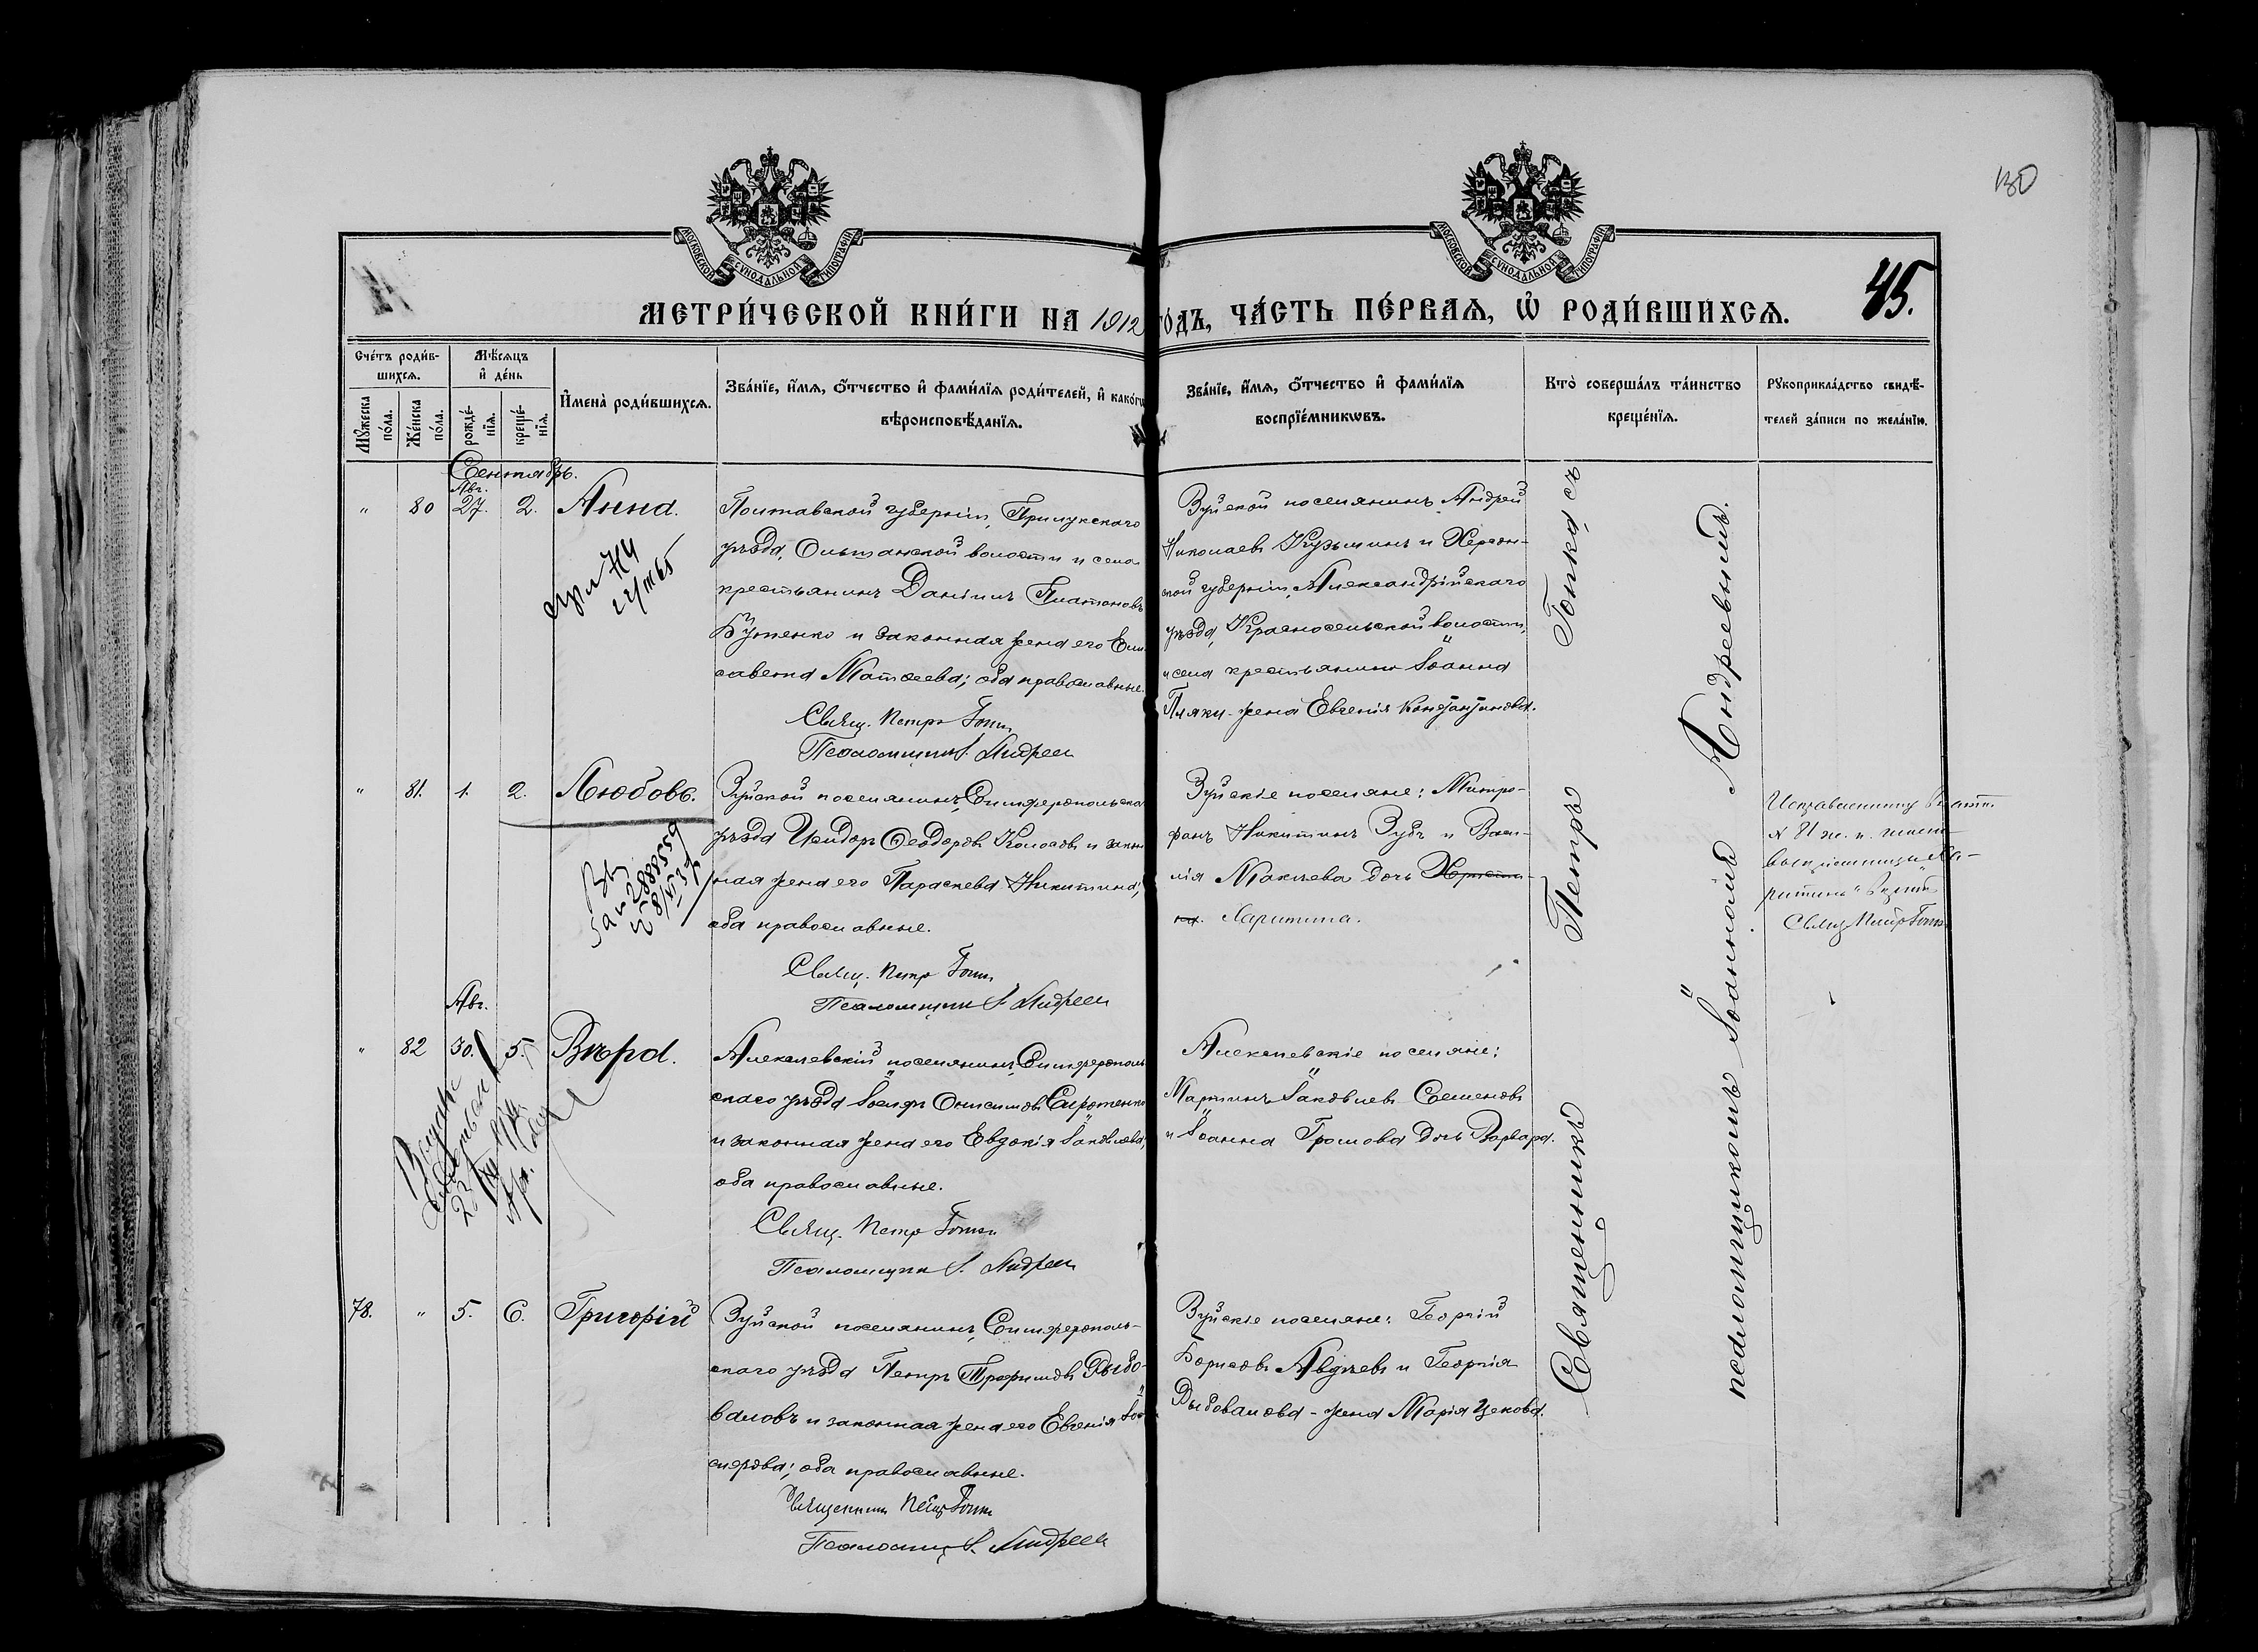 130
МОСКОВСКОЙ СУНОДАЛЬНОЙ ТИПОГРАФІИ
МОСКОВСКОЙ СУНОДАЛЬНОЙ ТИПОГРАФІИ
МЕТРИ́ЧЕСКОЙ КНИ́ГИ НА 1912 ГО́ДЪ, ЧА́СТЬ ПЕ́РВАѦ, Ѡ҆ РОДИ́ВШИХСѦ.
45.
Сче́тъ роди́в-
шихсѧ.
Мꙋ́жеска по́ла.
Же́нска по́ла.
Мѣ́сѧцъ
и҆ де́нь
рожде́-
нїѧ.
креще́-
нїѧ.
И҆мена̀ роди́вшихсѧ.
Зва́нїе, и҆́мѧ, ѻ҆́тчество и҆ фами́лїѧ роди́телей, и҆ како́гѡ
вѣроисповѣ́данїѧ.
Зва́нїе, и҆́мѧ, ѻ҆́тчество и҆ фами́лїѧ
воспрїе́мникѡвъ.
Кто̀ соверша́лъ та́инство
креще́нїѧ.
Рꙋкоприкла́дство свидѣ́-
телей за́писи по жела́нїю.
Сентябрь.
Авг.
" 80 27. 2. Анна.
Полтавской губерніи, Прилукскаго
уѣзда, Ольшанской волости и села
крестьянинъ Даніилъ Платоновъ
Бутенко и законная жена его Ели
савета Матѳеева; оба православные.
Свящ. Петръ Гопка
Псаломщикъ І. Андреев
Зуйской поселянинъ Андрей
Николаевъ Кузьминъ и Херсон-
ской губерніи, Александрійскаго
уѣзда, Красносельской волости,
и села крестьянина Іоанна
Пляки - жена Евгенія Константинова.
" 81. 1. 2. Любовь.
288859
8/VI 37
Зуйской поселянинъ, Симферопольска
уѣзда Исидоръ Ѳеодоровъ Колосовъ и закон
ная жена его Параскева Никитина;
оба православные.
Свящ. Петръ Гопка
Псаломщикъ І. Андреев
Зуйскіе поселяне: Митро-
фанъ Никитинъ Зубъ и Васи-
лія Макѣева дочь Христи-
на. Харитина.
№ 81 ж. п.
Свящ. Петръ Гопка
Авг.
" 82 30. 5. Вѣра.
Алексѣевскій поселянинъ, Симферополь
скаго уѣзда Іосифъ Онисимовъ Сиротенко
и законная жена его Евдокія Іаковлева;
оба православные.
Свящ. Петръ Гопка
Псаломщикъ І. Андреев
Алексѣевскіе поселяне:
Мартинъ Іаковлевъ Семеновъ
и Іоанна Громова дочь Варвара.
78. " 5. 6. Григорій
Зуйской поселянинъ, Симферополь-
скаго уѣзда Петръ Трофимовъ Дыбо-
валовъ и законная жена его Евгенія
оба православные.
Священникъ Петръ Гопка
Псаломщ. І. Андреев
Зуйскіе поселяне: Георгій
Борисовъ Авдѣевъ и Георгія
Дыбовалова - жена Марія
Священникъ Петръ Гопка съ
псаломщикомъ Іоанномъ Андреевымъ.